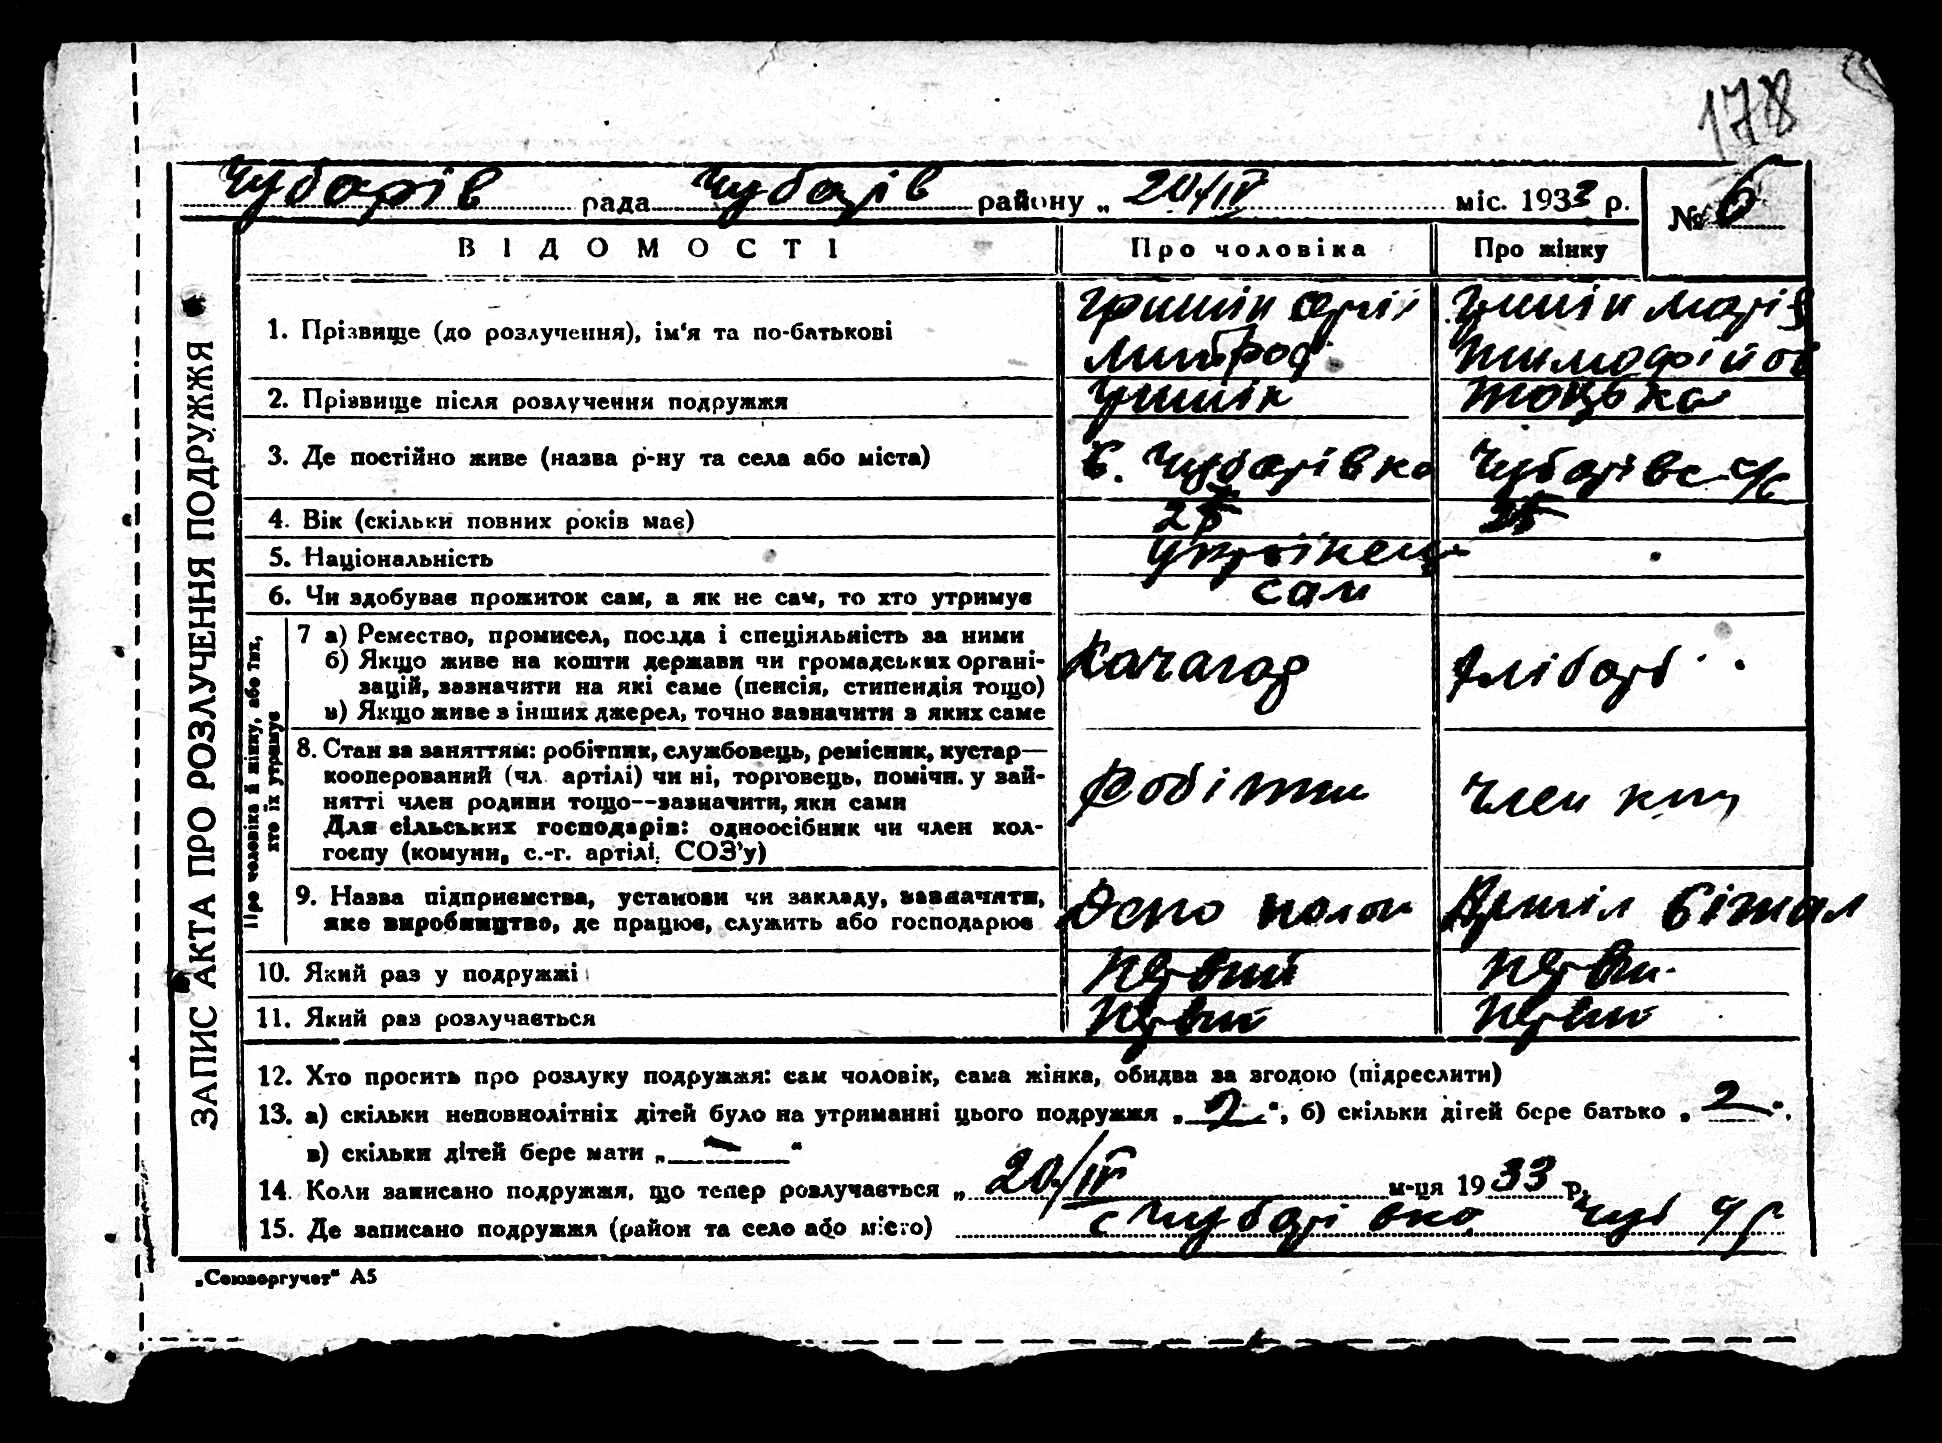 178
Чубарів рада Чубарів району „ 20/IV міс. 1933 р. № 6
ЗАПИС АКТА ПРО РОЗЛУЧЕННЯ ПОДРУЖЖЯ
ВІДОМОСТІ Про чоловіка Про жінку
1. Прізвище (до розлучення), ім'я та по-батькові
2. Прізвище після розлучення подружжя Тоцька
3. Де постійно живе (назва р-ну та села або міста) с. Чубарівка
4. Вік (скільки повних років має)
5. Національність українець
6. Чи здобуває прожиток сам, а як не сам, то хто утримує сам
Про чоловіка й жінку, або тих, хто їх утримує
7 а) Ремество, промисел, посада і спеціяльність за ними
б) Якщо живе на кошти держави чи громадських органі-
зацій, зазначити на які саме (пенсія, стипендія тощо)
в) Якщо живе з інших джерел, точно зазначити з яких саме
Качагар Хлібороб
8. Стан за заняттям: робітник, службовець, ремісник, кустар—
кооперований (чл. артілі) чи ні, торговець, помічн. у зай-
нятті член родини тощо--зазначити, яки сами
Для сільських господарів: одноосібник чи член кол-
госпу (комуни, с.-г. артілі, СОЗ'у)
член
9. Назва підприємства, установи чи закладу, зазначити,
яке виробництво, де працює, служить або господарює
10. Який раз у подружжі первий перви
11. Який раз розлучається перви перви
12. Хто просить про розлуку подружжя: сам чоловік, сама жінка, обидва за згодою (підреслити)
13. а) скільки неповнолітніх дітей було на утриманні цього подружжя „ 2 “, б) скільки дітей бере батько „ 2 “,
в) скільки дітей бере мати „ — “
14. Коли записано подружжя, що тепер розлучається „ 20/IV м-ця 1933 р.
15. Де записано подружжя (район та село або місто) с Чубарівка Чуб
„Союзоргучет“ А5